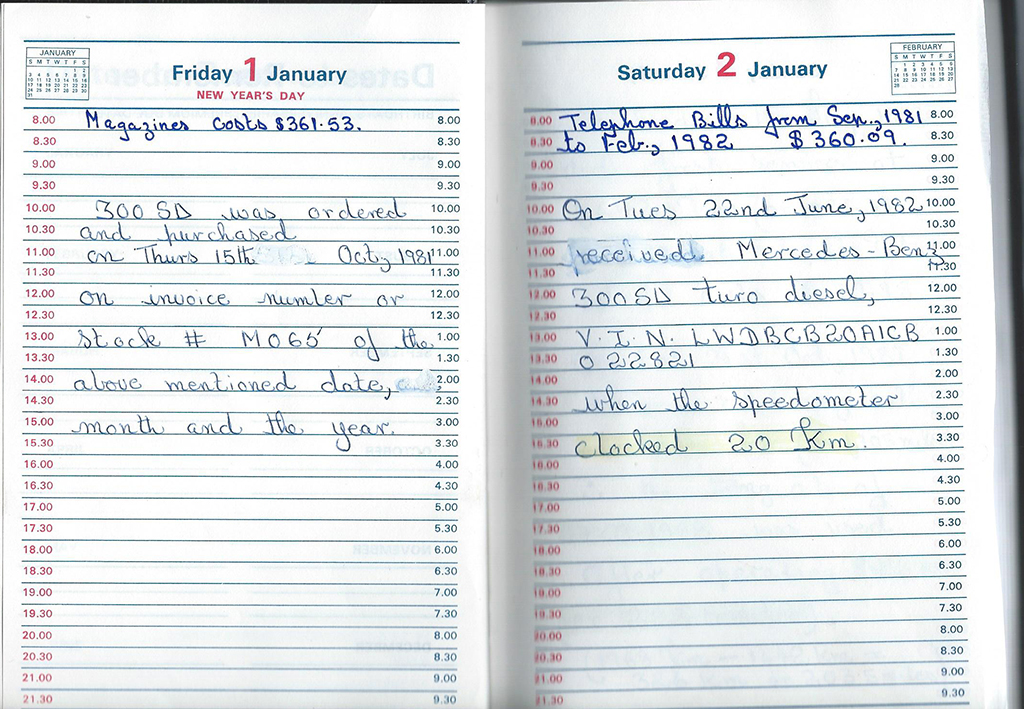 JANUARY
S M T W T F S
Friday 1 January
NEW YEAR'S DAY
8.00 Magazines costs $361.53. 8.00
8.30 8.30
9.00 9.00
9.30 9.30
10.00 300 SD was ordered 10.00
10.30 and purchased 10.30
11.00 on Thurs 15th Oct, 1981 11.00
11.30 11.30
12.00 on invoice number or 12.00
12.30 12.30
13.00 stock # M065 of the 1.00
13.30 1.30
14.00 above mentioned date, 2.00
14.30 2.30
15.00 month and the year. 3.00
15.30 3.30
16.00 4.00
16.30 4.30
17.00 5.00
17.30 5.30
18.00 6.00
18.30 6.30
19.00 7.00
19.30 7.30
20.00 8.00
20.30 8.30
21.00 9.00
21.30 9.30
FEBRUARY
S M T W T F S
Saturday 2 January
8.00 Telephone Bills from Sep., 1981 8.00
8.30 to Feb., 1982 $360.09. 8.30
9.00 9.00
9.30 9.30
10.00 On Tues 22nd June, 1982 10.00
10.30 10.30
11.00 received Mercedes-Benz 11.00
11.30 11.30
12.00 300SD turo diesel, 12.00
12.30 12.30
13.00 V.I.N. LWDBCB20A1CB 1.00
13.30 022821 1.30
14.00 2.00
14.30 when the speedometer 2.30
15.00 3.00
15.30 clocked 20 Km. 3.30
16.00 4.00
16.30 4.30
17.00 5.00
17.30 5.30
18.00 6.00
18.30 6.30
19.00 7.00
19.30 7.30
20.00 8.00
20.30 8.30
21.00 9.00
21.30 9.30